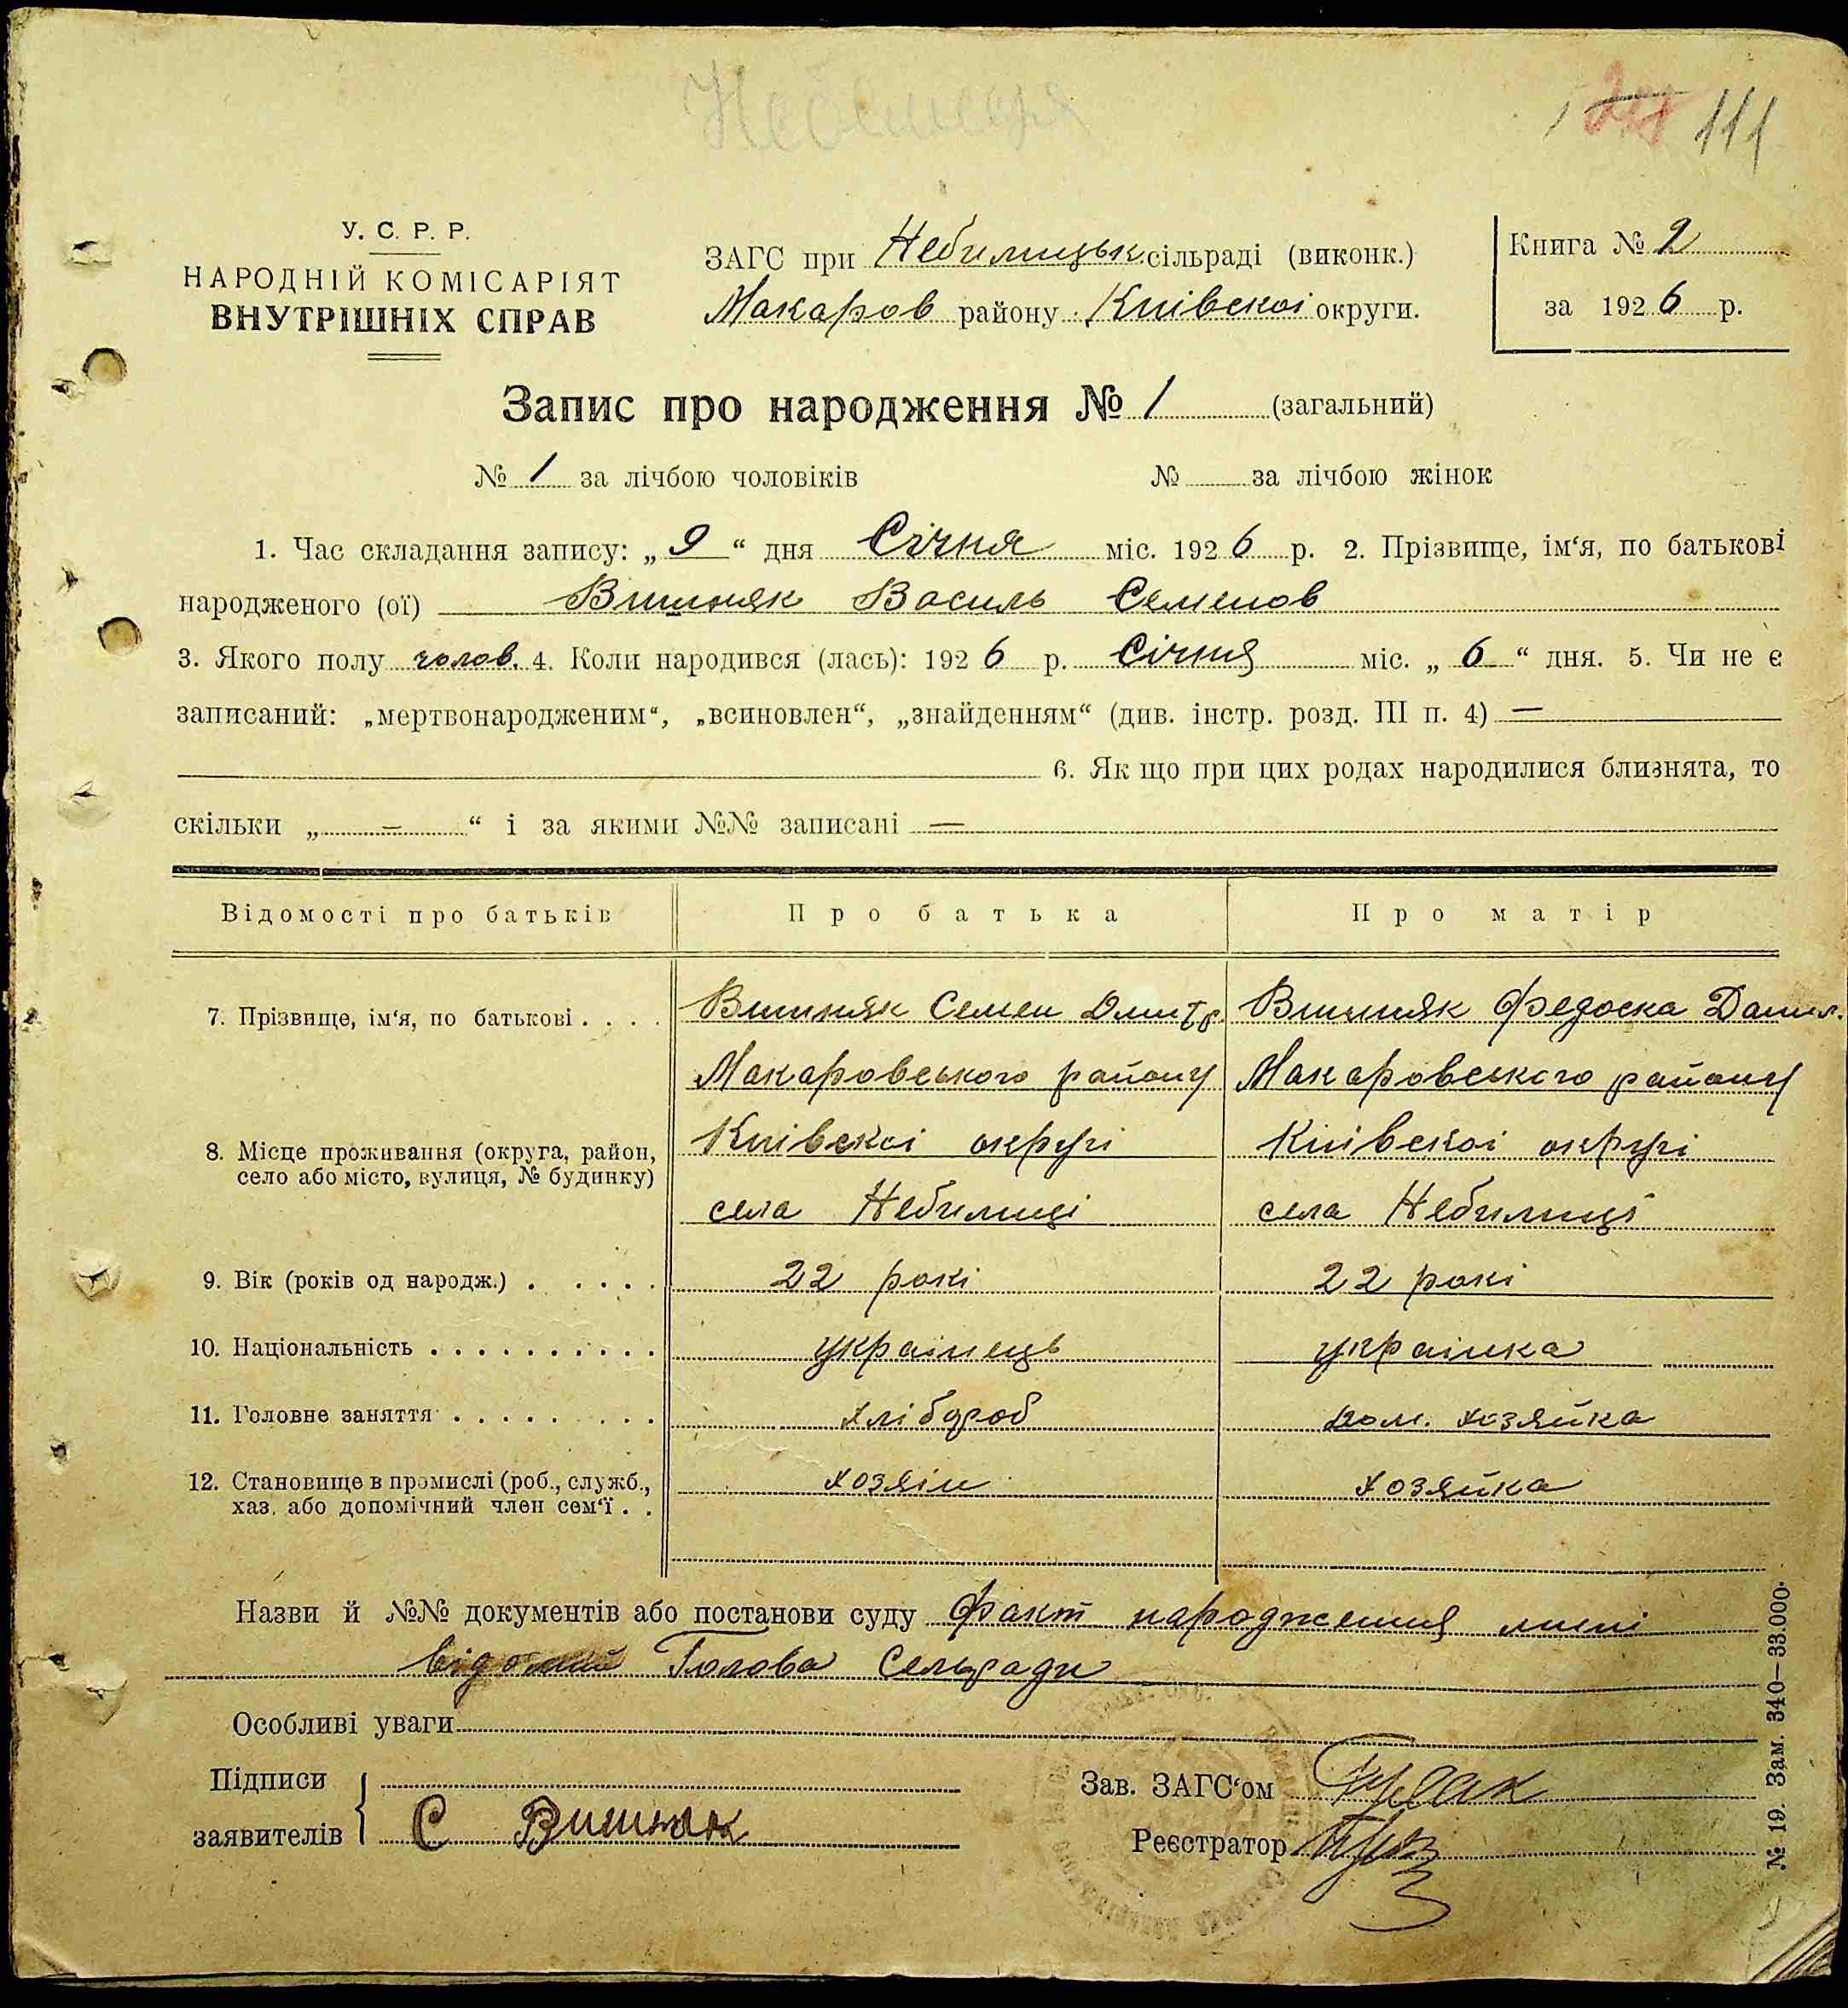 111
У. С. Р. Р.
НАРОДНІЙ КОМІСАРІЯТ
ВНУТРІШНІХ СПРАВ
ЗАГС при Небилицьк. сільраді (виконк.)
Макаров району Київскої округи.
Книга № 2
за 1926 р.
Запис про народження № 1 (загальний)
№ 1 за лічбою чоловіків № за лічбою жінок
1. Час складання запису: „ 9 “ дня Січня міс. 1926 р. 2. Прізвище, ім‘я, по батькові
народженого (ої) Вишняк Василь Семенов
3. Якого полу чолов. 4. Коли народився (лась): 1926 р. Січня міс. „ 6 “ дня. 5. Чи не є
записаний: „мертвонародженим“, „всиновлен“, „знайденням“ (див. інстр. розд. III п. 4) —
6. Як що при цих родах народилися близнята, то
скільки „ — “ і за якими №№ записані —
Відомості про батьків Про батька Про матір
7. Прізвище, ім‘я, по батькові . . . . Вишняк Семен Дмитр. Вишняк Федоска Данил.
Макаровського району Макаровського району
8. Місце проживання (округа, район, село або місто, вулиця, № будинку) Київскої окрузі Київскої окрузі
села Небилиці села Небилиці
9. Вік (років од народж.) . . . . . 22 рокі 22 рокі
10. Національність . . . . . . . . . . українець українка
11. Головне заняття . . . . . . . . хлібороб дом. хозяйка
12. Становище в промислі (роб., служб., хаз. або допомічний член сем‘ї . . хозяїн хозяйка
Назви й №№ документів або постанови суду Факт народження мині
відомий Голова Сельради
Особливі уваги
Підписи
заявителів С Вишняк
Зав. ЗАГС‘ом
Реєстратор
№ 19. Зам. 340—33.000.